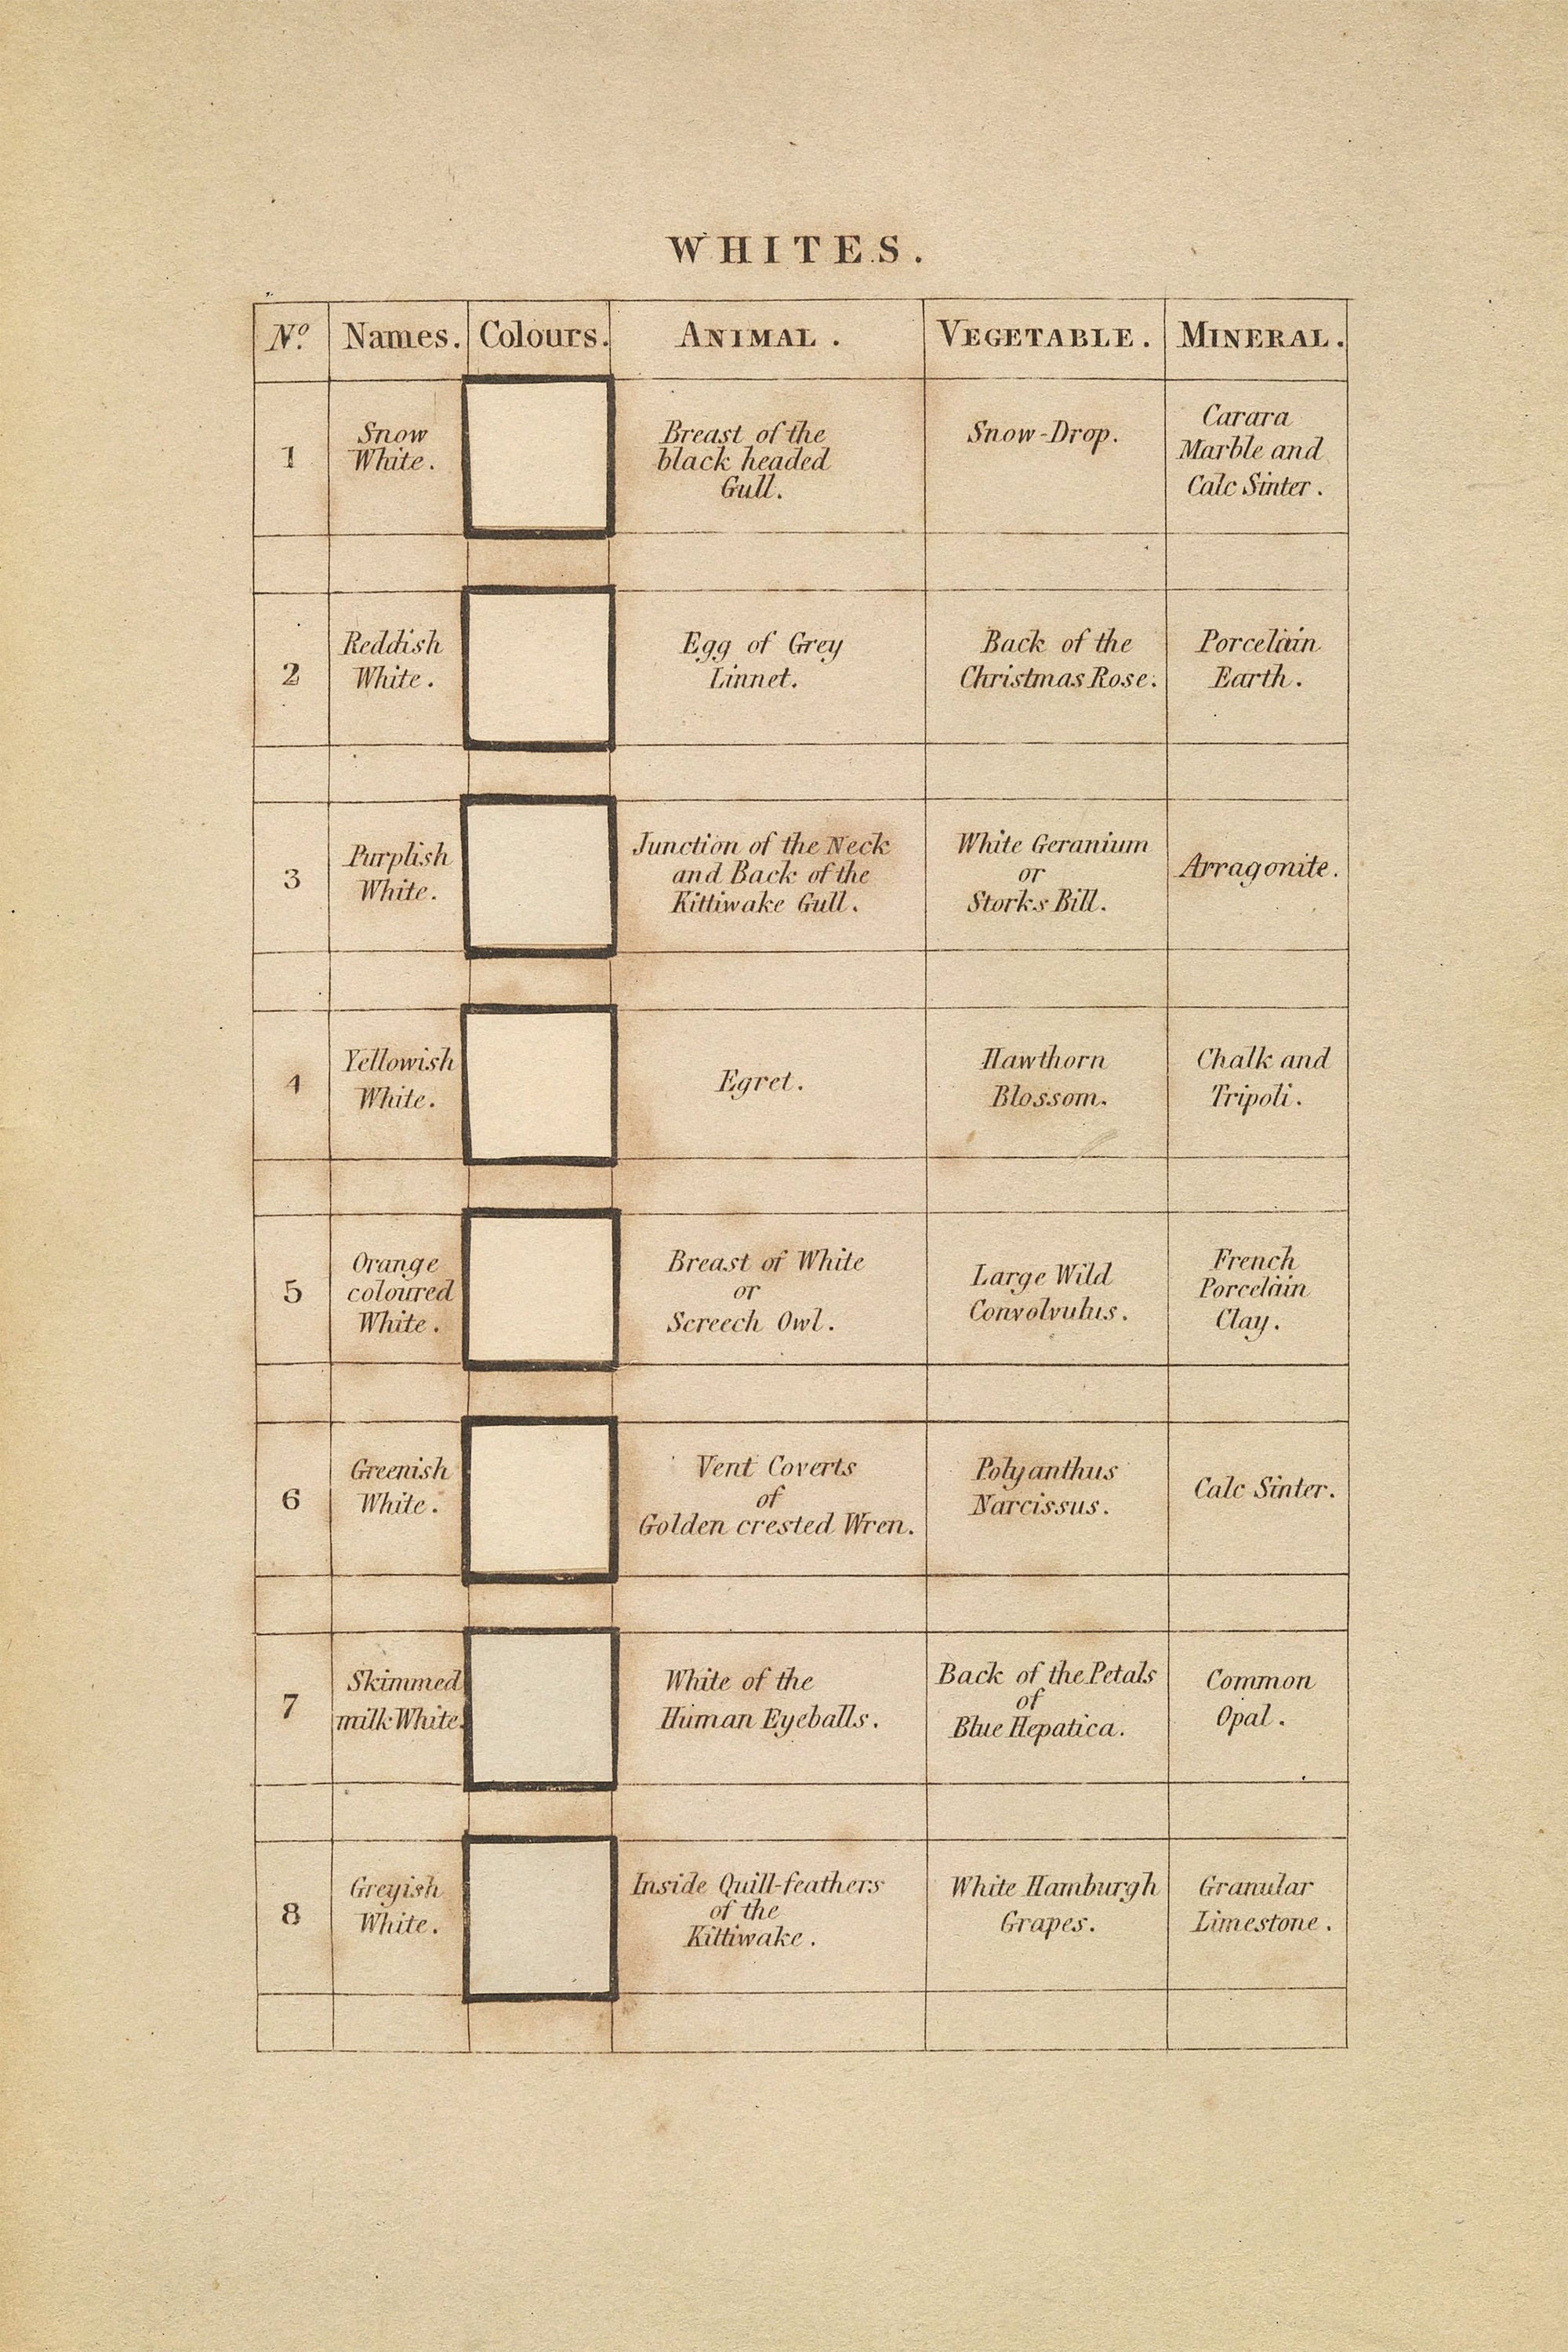 WHITES.
Nº. Names. Colours. ANIMAL. VEGETABLE. MINERAL.
1
Snow
White.
Breast of the
black headed
Gull.
Snow-Drop.
Carara
Marble and
Calc Sinter.
2
Reddish
White.
Egg of Grey
Linnet.
Back of the
Christmas Rose.
Porcelain
Earth.
3
Purplish
White.
Junction of the Neck
and Back of the
Kittiwake Gull.
White Geranium
or
Storks Bill.
Arragonite.
4
Yellowish
White.
Egret.
Hawthorn
Blossom.
Chalk and
Tripoli.
5
Orange
coloured
White.
Breast of White
or
Screech Owl.
Large Wild
Convolvulus.
French
Porcelain
Clay.
6
Greenish
White.
Vent Coverts
of
Golden crested Wren.
Polyanthus
Narcissus.
Calc Sinter.
7
Skimmed
milk White.
White of the
Human Eyeballs.
Back of the Petals
of
Blue Hepatica.
Common
Opal.
8
Greyish
White.
Inside Quill-feathers
of the
Kittiwake.
White Hamburgh
Grapes.
Granular
Limestone.